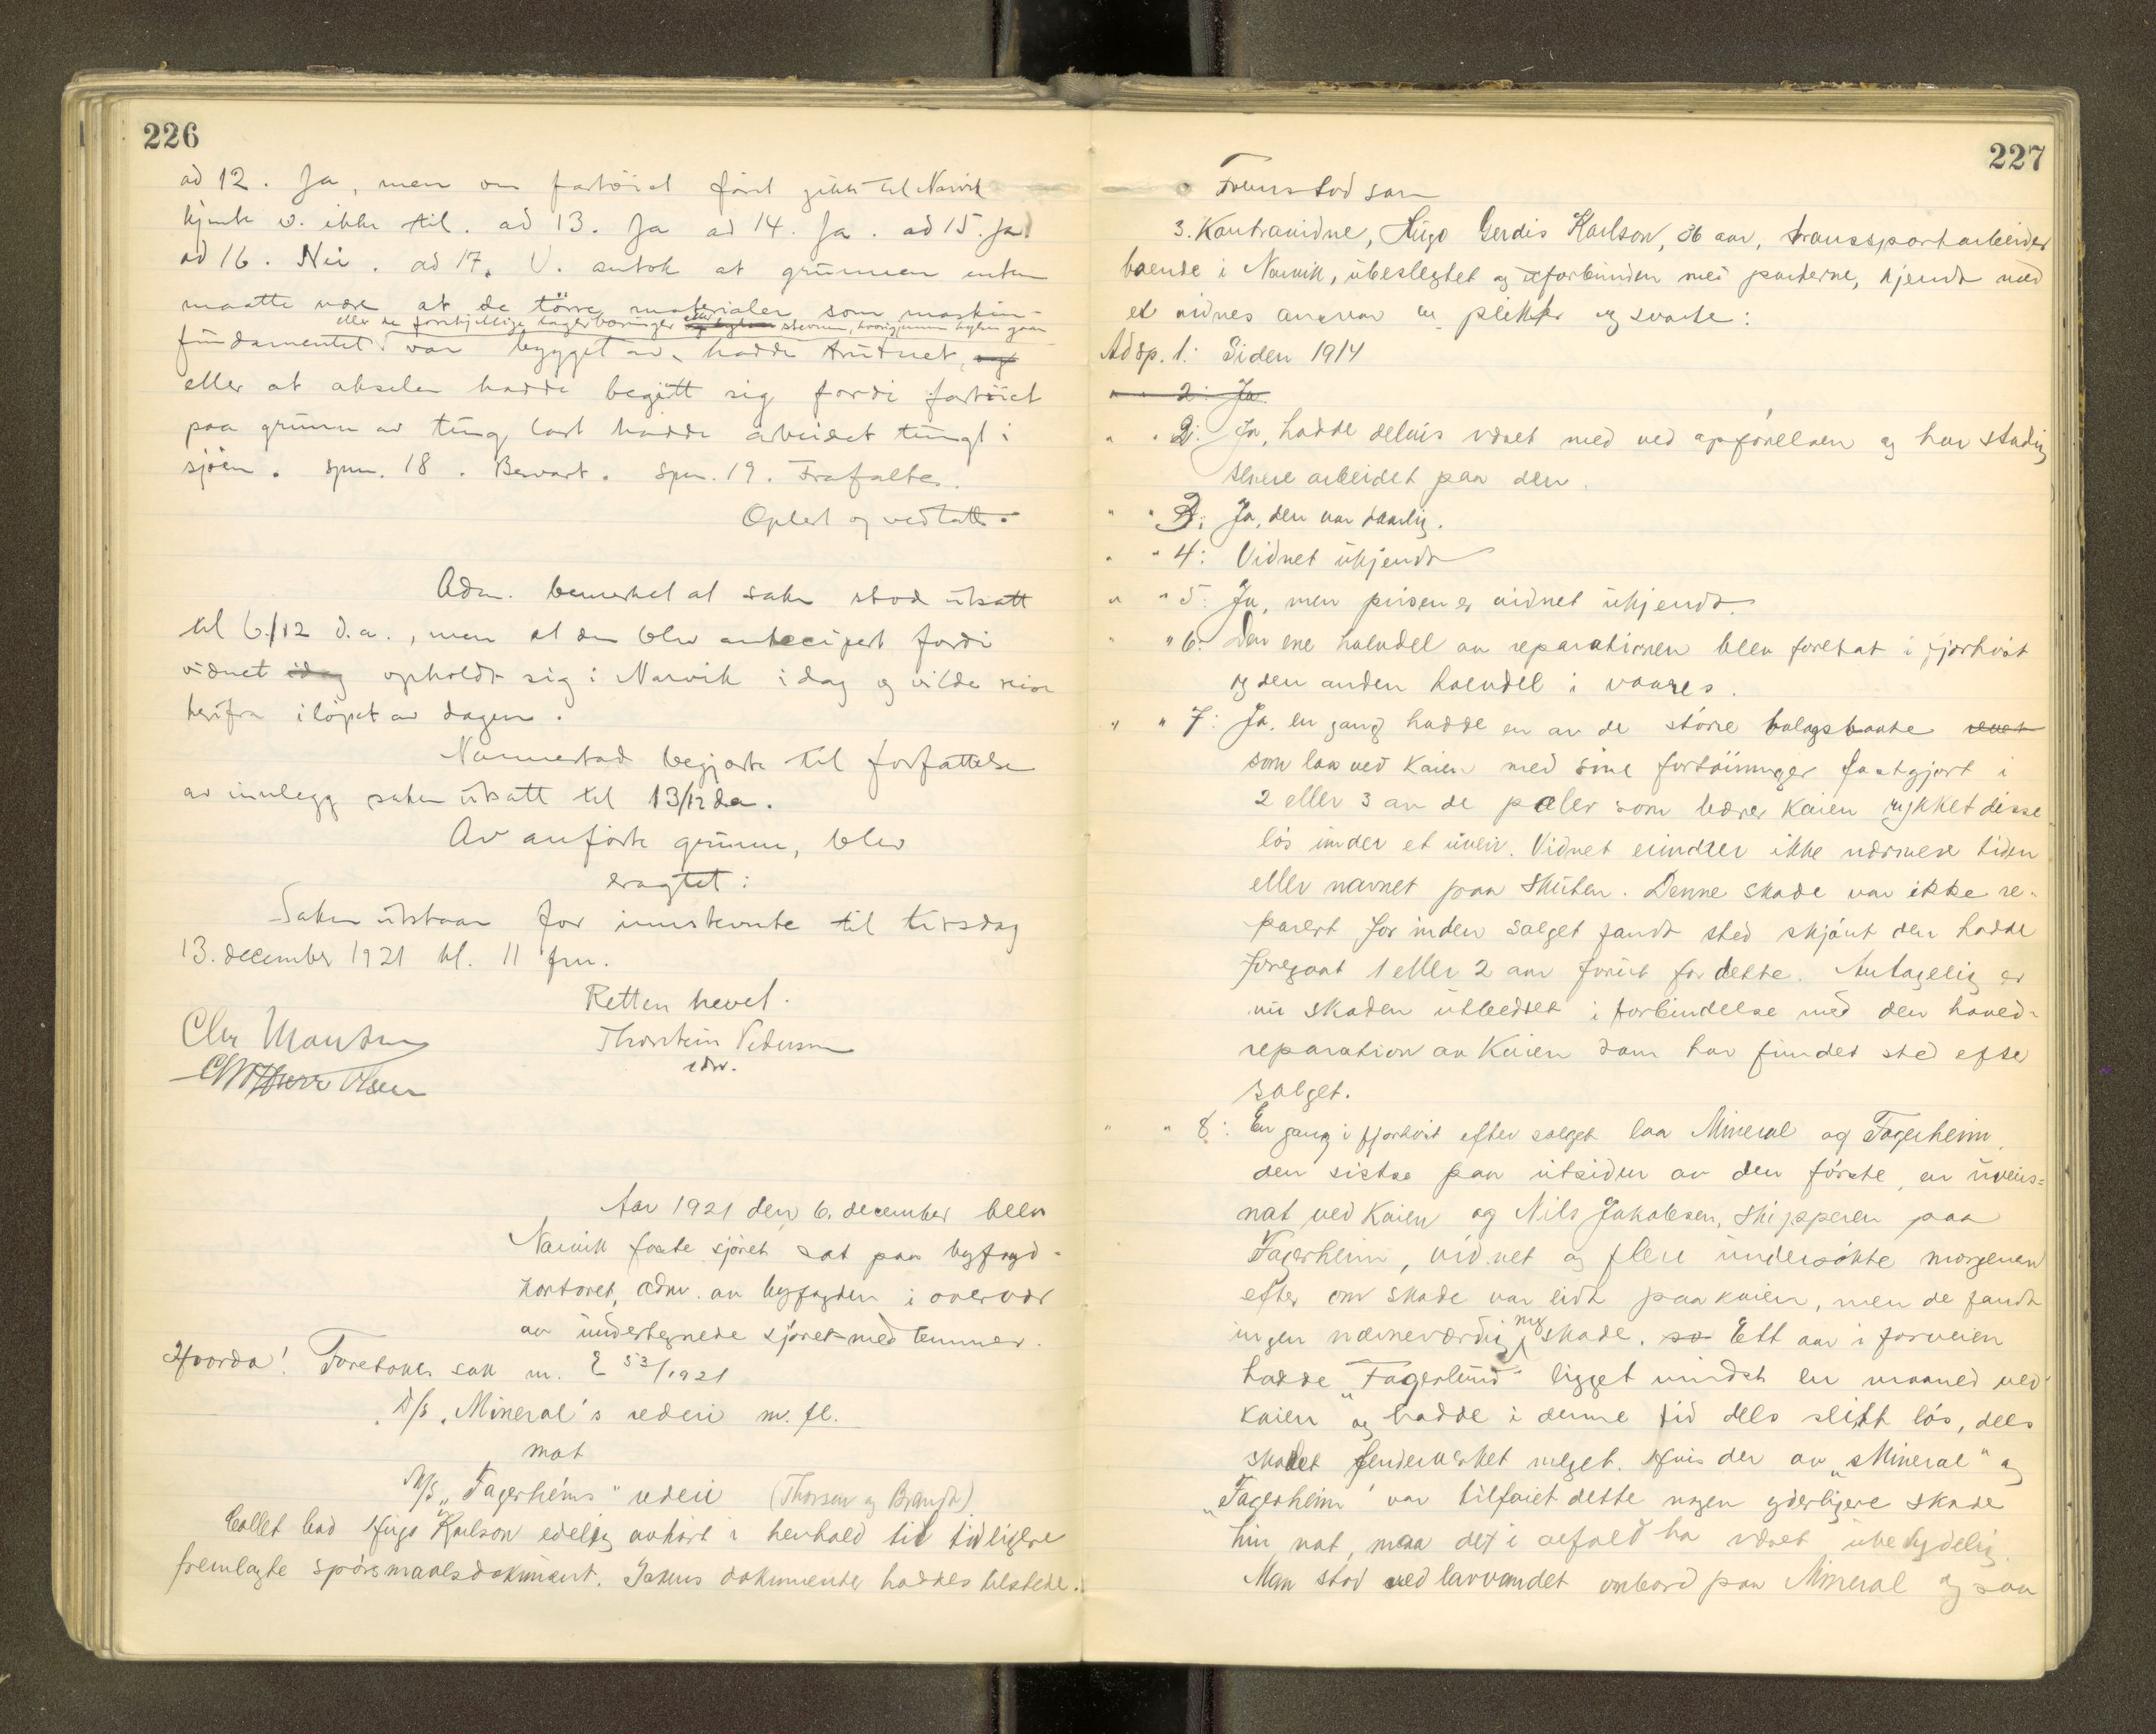 226
ad 12. Ja, men om fartöiet först gikk til Narvik
kjente v. ikke til. ad 13. Ja ad 14. Ja. ad 15. Ja.
ad 16. Nei. ad 17. V. antok at grunnen enten
maatte være at de törre materialer som maskin-
eller de forskjellige lagerböininger eller stevnen, hvorigjennem hylsen gaar
fundamentet var bygget av, hadde trutnet, og
eller at akselen hadde begitt sig fordi fartöiet
paa grunn av tung last hadde arbeidet tungt i
sjöen. Spm. 18. Besvart. Spm. 19. Frafaltes.
Oplest og vedtatt.
Adm. bemerket at saken stod utsatt
til 6/12 d.a., men at den blev antecipert fordi
vidnet idag opholdt sig i Narvik idag og vilde reise
herifra i löpet av dagen.
Nannestad begjærte til forfattelse
av innlegg saken utsatt til 13/12 da.
Av anförte grunn, blev
eragtet:
Saken utstaar for innstevnte til tirsdag
13. december 1921 kl. 11 fm.
Retten hevet.
Thorstein Pedersen
edsv.
Chr Monsen
Olsen
Aar 1921 den 6. december blev
Narvik faste sjöret sat paa byfogd-
kontoret, adm. av byfogden i overvær
av undertegnede sjöretsmedlemmer.
Hvorda! Foretokes sak nr. E 53/1921
D/S „Mineral's rederi m. fl.
mot
M/S „Fagerheims" rederi (Thorsen og Brandt)
Collet bad Hugo Karlson edelig avhört i henhold til tidligere
fremlagte spörsmaalsdokument. Sakens dokumenter haddes tilstede.
227
Fremstod som
3. Kontravidne, Hugo Gerdis Karlson, 36 aar, transportarbeider
boende i Narvik, ubeslegtet og uforbunden med parterne, kjendt med
et vidnes ansvar og plikter og svarte:
Ad sp. 1: Siden 1914
" " 2: Ja.
" " 2: Ja, hadde delvis været med ved opförelsen og har stadig
senere arbeidet paa den.
" " 3: Ja, den var daarlig.
" " 4: Vidnet ukjendt
" " 5: Ja, men prisen er vidnet ukjendt.
" " 6: Den ene halvdel av reparationen blev foretat i fjorhöst
og den anden halvdel i vaares.
" " 7: Ja. en gang hadde en av de större bolagsbaate
som laa ved kaien med sine fortöininger fastgjort i
2 eller 3 av de pæler som bærer kaien rykket disse
lös under et uveir. Vidnet erindrer ikke nærmere tiden
eller navnet paa skuten. Denne skade var ikke re-
parert för inden salget fandt sted skjönt den hadde
foregaat 1 eller 2 aar forut for dette. Antagelig er
nu skaden utbedret i forbindelse med den hoved-
reparation av kaien som har fundet sted efter
salget.
" " 8: En gang i fjorhöst efter salget laa Mineral og Fagerheim,
den sidste paa utsiden av den förste, en uveirs-
nat ved kaien og Nils Jakobsen, skipperen paa
Fagerheim, vidnet og flere undersökte morgenen
efter om skade var lidt paa kaien, men de fandt
ingen nævneværdig ny skade. Ett aar i forveien
hadde „Fagerlund" ligget mindst en maaned ved
kaien og hadde i denne tid dels slitt lös, dels
skadet fenderverket meget. Hvis der av „Mineral" og
„Fagerheim" var tilföiet dette nogen yderligere skade
hin nat, maa det i alfald ha været ubetydelig.
Man stod ved larvandet ombord paa Mineral og saa